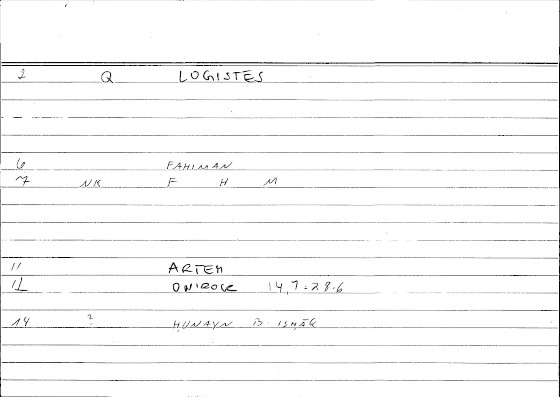 2 Q LOGISTES
6 FAHIMAN
7 NK F H M
11 ARTEM
12 ONIROCR 14,7 = 28.6
14 ? ḤUNAYN B. ISḤĀQ